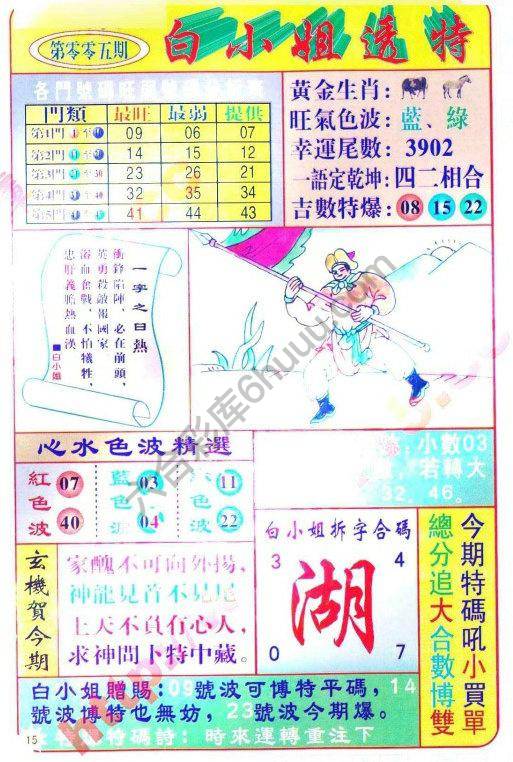 第零零五期
白小姐透特
門類 最旺 最弱 提供
第1門 09 06 07
第2門 14 15 12
第3門 23 26 21
第4門 32 35 34
第5門 41 44 43
黃金生肖:
旺氣色波:藍、綠
幸運尾數:3902
一語定乾坤:四二相合
吉數特爆:08 15 22
一字之曰熱
衝鋒陷陣,必在前頭,
英勇殺敵報國家
浴血奮戰,不怕犧牲,
忠肝義膽熱血漢
■白小姐
心水色波精選
紅色波 07 40
藍色 03 04
11 22
小數03
若轉大
32、46。
玄機賀今期
家醜不可向外揚,
神龍見首不見尾
上天不負有心人,
求神問卜特中藏。
白小姐拆字合碼
3 4
湖
0 7
今期特碼吼小買單
總分追大合數博雙
白小姐贈賜:09號波可博特平碼,14
號波博特也無妨,23號波今期爆。
特碼詩:時來運轉重注下
15
六合彩库6huuu.com